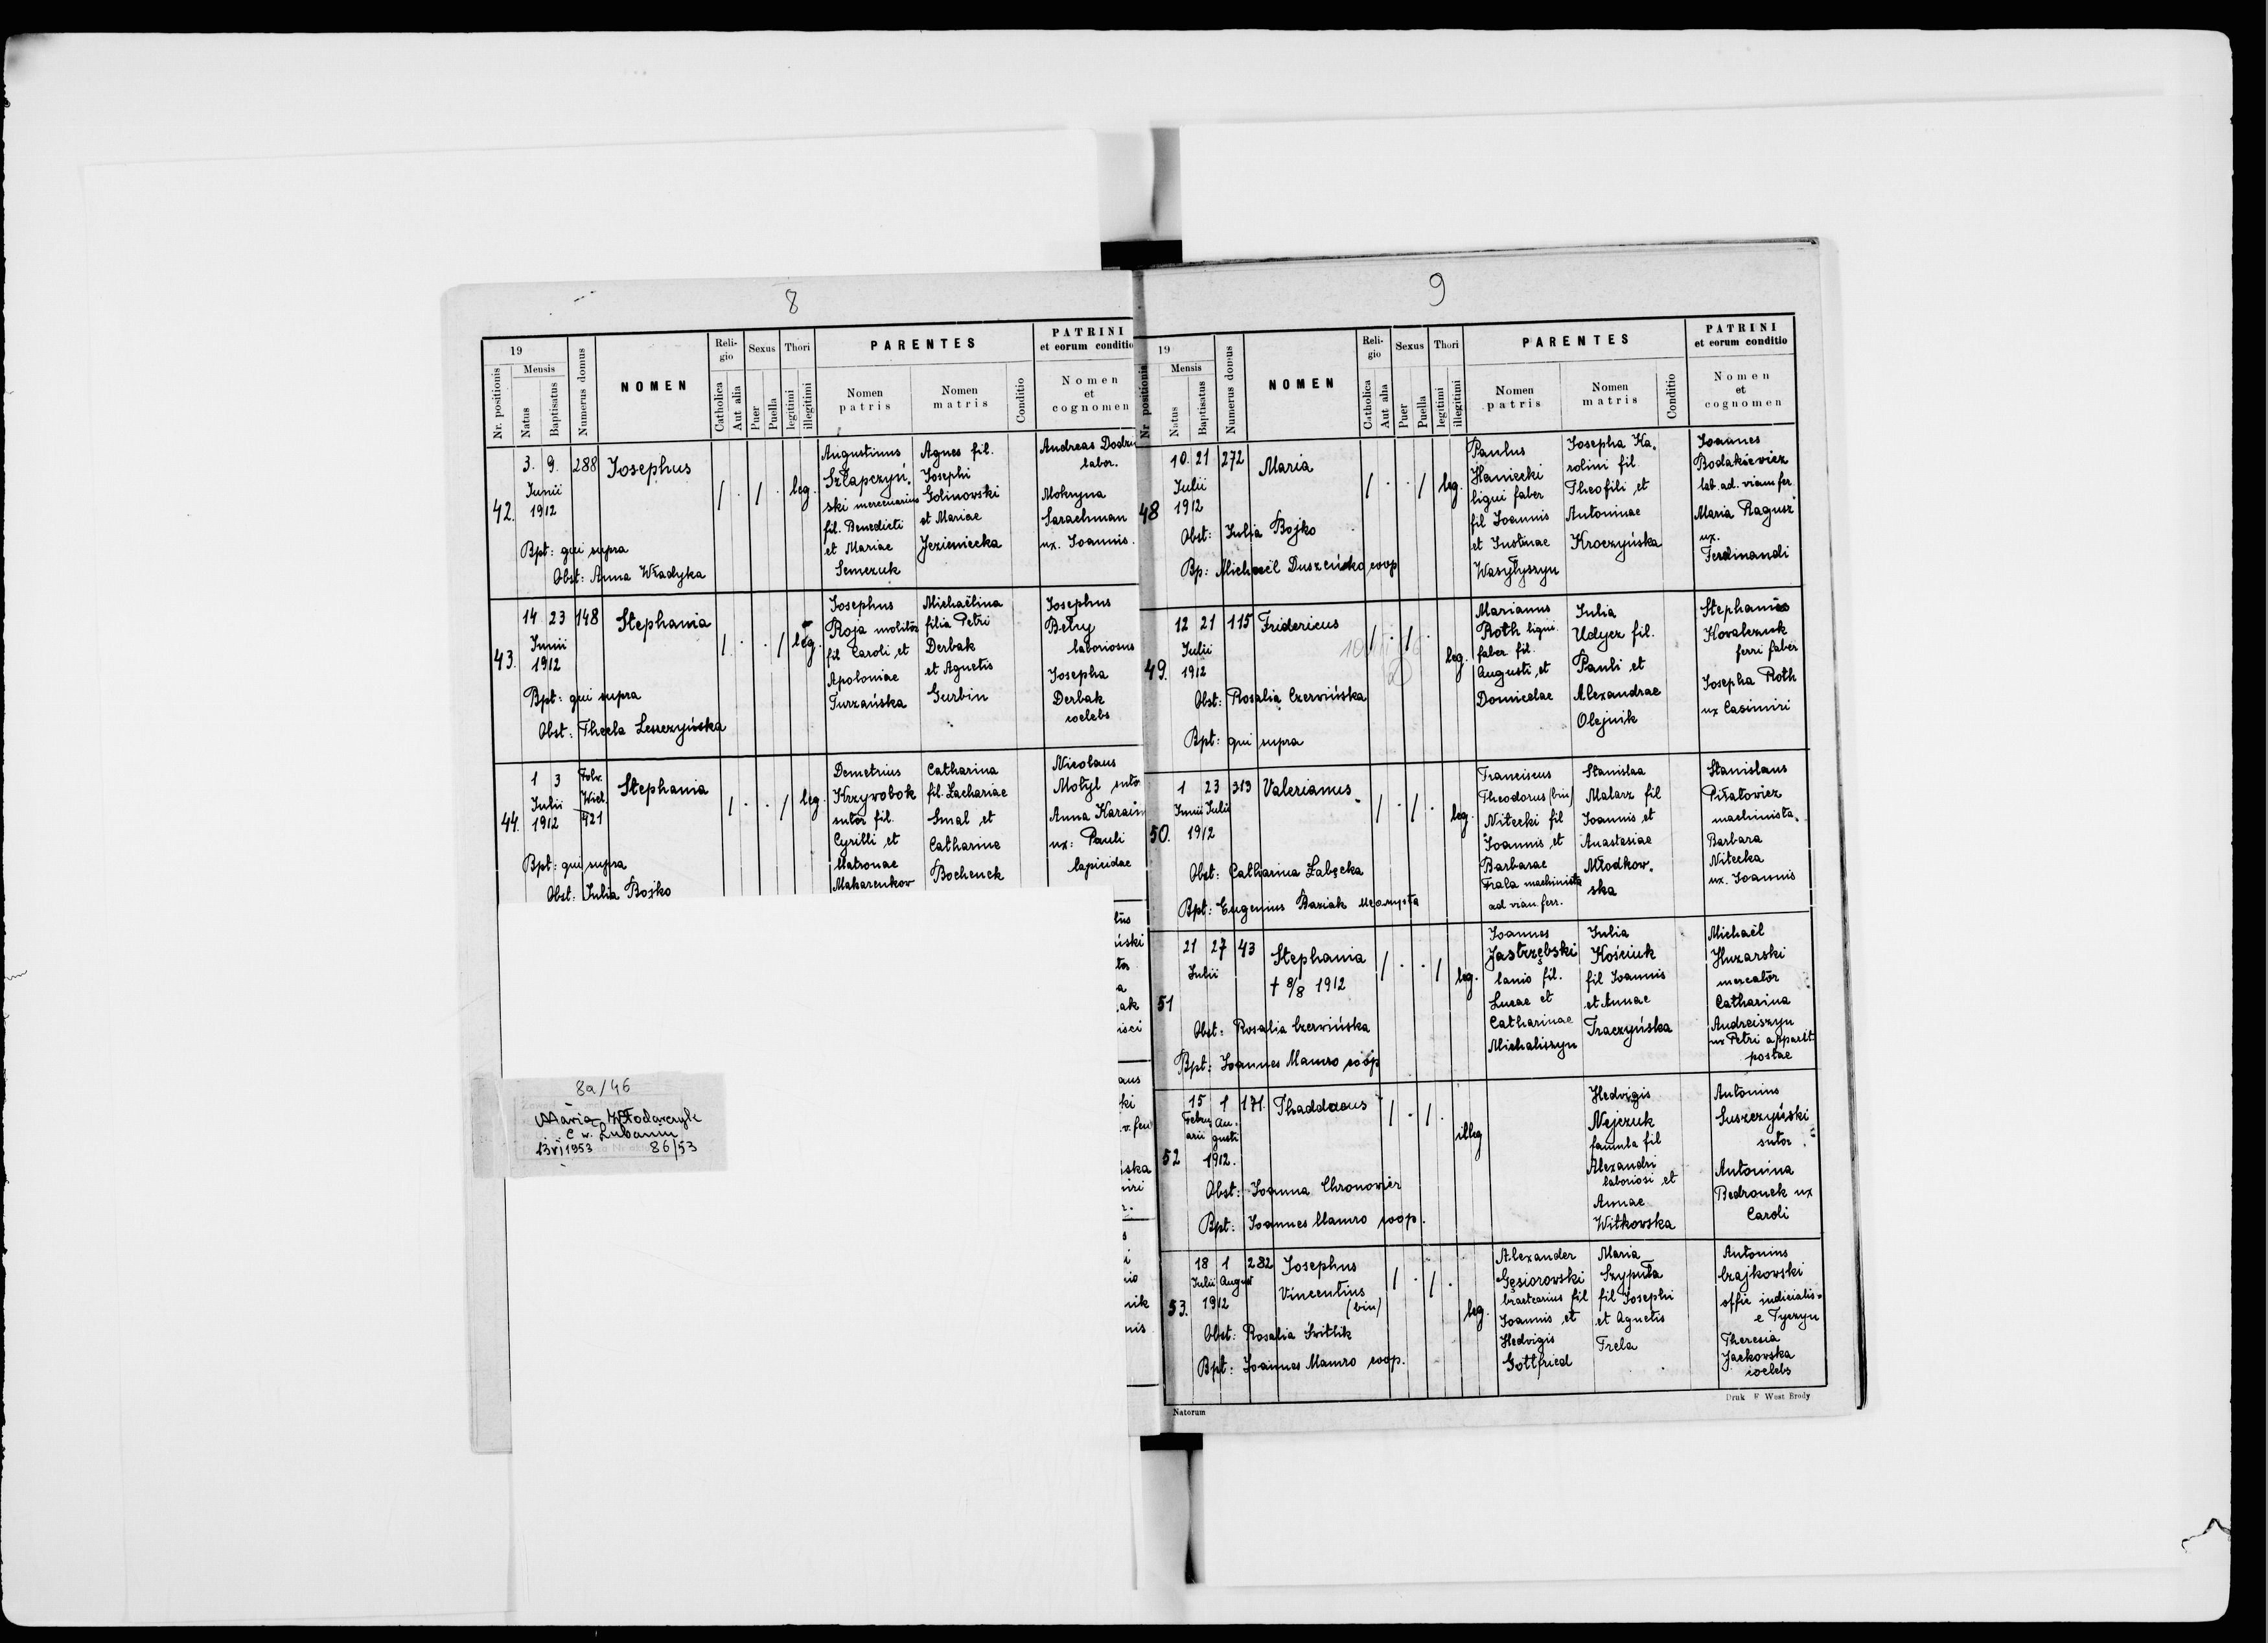 8
19
Nr. positionis
Mensis
Natus
Baptisatus
Numerus domus
NOMEN
Religio
Catholica
Aut alia
Sexus
Puer
Puella
Thori
legitimi
illegitimi
PARENTES
Nomen patris
Nomen matris
Conditio
PATRINI
et eorum conditio
Nomen
et
cognomen
42.
3. 9. 288 Josephus
Junii
1912
/ . / . leg.
Bpt: qui supra
Obst: Anna Władyka
Augustinus
Szłapczyń.
ski mercenarius
fil. Benedicti
et Mariae
Semczuk
Agnes fil.
Josephi
Golinowski
et Mariae
Jezieniecka
Andreas
labor.
Mokryna
Sarachman
ux. Joannis.
43.
14 23 148 Stephania
Junii
1912
/ . . / leg.
Bpt: qui supra
Obst: Thecla Leszczyńska
Josephus
Roja molitor
fil Caroli et
Apoloniae
Turzańska
Michaëlina
filia Petri
Derbak
et Agnetis
Gurbin
Josephus
Bełuy
laboriosus
Josepha
Derbak
coelebs
44.
1 3 Folw. Wiel. 421 Stephania
Julii
1912
/ . . / leg.
Bpt: qui supra
Obst: Julia Bojko
Demetrius
Krzywobok
sutor fil.
Cyrilli et
Matronae
Makarenkow
Catharina
fil. Zachariae
Smal et
Catharine
Bochenek
Nicolaus
Motyl
Anna
ux: Pauli
lapicidae
8a/46
Maria Włodarczyk
c w. Lubaniu
13 VI 1953 86/53
9
19
Nr positionis
Mensis
Natus
Baptisatus
Numerus domus
NOMEN
Religio
Catholica
Aut alia
Sexus
Puer
Puella
Thori
legitimi
illegitimi
PARENTES
Nomen patris
Nomen matris
Conditio
PATRINI
et eorum conditio
Nomen
et
cognomen
48
10. 21 272 Maria
Julii
1912
/ . . / leg.
Obst: Julia Bojko
Bp: Michaël Duszeńko coop
Paulus
Haniecki
ligni faber
fil Joannis
et Justinae
Wasyłyszyn
Josepha Ka.
rolini fil.
Theofili et
Antoninae
Kroczyńska
Joannes
Bodakiewicz
lab. ad. viam fer
Maria Ragusz
ux.
Ferdinandi
49.
12 21 115 Fridericus
Julii
1912
/ . / . leg.
Obst: Rosalia Czerwińska
Bpt: qui supra
Marianus
Roth ligni.
faber fil.
Augusti, et
Domicelae
Julia
Udycz fil.
Pauli et
Alexandrae
Olejnik
Stephanus
Kovalczuk
ferri faber
Josepha Roth
ux Casimiri
50.
1 23 313 Valerianus
Junii Julii
1912
/ . / . leg.
Obst: Catharina Łabęcka
Bpt: Eugenius Baziak neomysta
Franciscus
Theodorus (bin)
Nitecki fil
Joannis et
Barbarae
Frala machinista
ad viam ferr.
Stanislaa
Malarz fil
Joannis et
Anastasiae
Młodkow.
ska
Stanislaus
Piłatowicz
machinista.
Barbara
Nitecka
ux. Joannis
51
21 27 43 Stephania
Julii
† 8/8 1912
/ . . / leg.
Obst: Rosalia Czerwińska
Bpt: Joannes Mamro coop
Joannes
Jastrzębski
lanio fil.
Lucae et
Catharinae
Michaliszyn
Julia
Kościuk
fil Joannis
et Annae
Traczyńska
Michaël
Huzarski
mercator
Catharina
Andreiszyn
ux Petri apparit.
postae
52
15 1 171. Thaddaeus
Februarii Augusti
1912.
/ . / . illeg
Obst: Joanna Chronowier
Bpt: Joannes Mamro coop.
Hedvigis
Nejczuk
famula fil
Alexandri
laboriosi et
Annae
Witkowska
Antonius
Suszczyński
sutor
Antonina
Bedronek ux
Caroli
53.
18 1 282 Josephus
Julii August Vincentius
1912 (bin)
/ . / . leg.
Obst: Rosalia Switlik
Bpt: Joannes Mamro coop.
Alexander
Gęsiorowski
bractearius fil
Joannis et
Hedvigis
Gottfried
Maria
Szypuła
fil Josephi
et Agnetis
Trela
Antonius
Czajkowski
offic indicialis
e Tyczyn
Theresia
Jackowska
coelebs
Natorum
Druk F West Brody